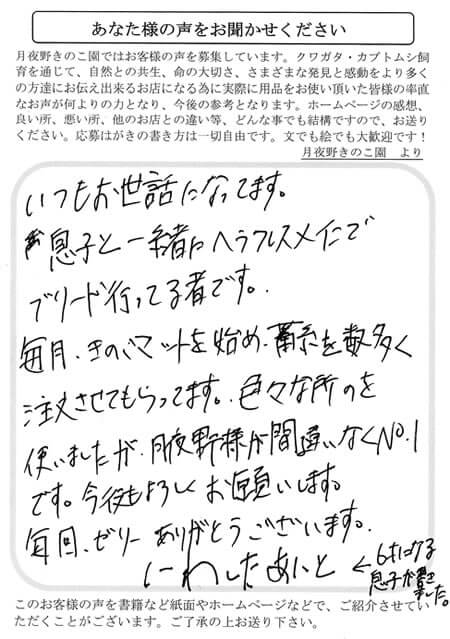 あなた様の声をお聞かせください
月夜野きのこ園ではお客様の声を募集しています。クワガタ・カブトムシ飼
育を通じて、自然との共生、命の大切さ、さまざまな発見と感動をより多く
の方達にお伝え出来るお店になる為に実際に用品をお使い頂いた皆様の率直
なお声が何よりの力となり、今後の参考となります。ホームページの感想、
良い所、悪い所、他のお店との違い等、どんな事でも結構ですので、お送り
ください。応募はがきの書き方は一切自由です。文でも絵でも大歓迎です！
月夜野きのこ園　より
いつもお世話になってます。
息子と一緒にヘラクレスメインで
ブリード行ってる者です。
毎月、きのこマットを始め、菌糸を数多く
注文させてもらってます。色々な所のを
使いましたが、月夜野様が間違いなくNo.1
です。今後もよろしくお願いします。
毎回、ゼリーありがとうございます。
いわしたあいと ←6才になる
息子が書きました。
このお客様の声を書籍など紙面やホームページなどで、ご紹介させてい
ただくことがございます。ご了承の上お送り下さい。